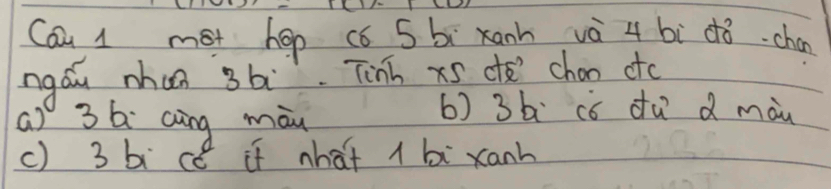 Câu 1 một hộp có 5 bi xanh và 4 bi đỏ . chọn
ngẫu nhiên 3 bi . Tính xs để chọn đtc
a) 3 bi cùng màu b) 3 bi có đủ 2 màu
c) 3 bi có ít nhất 1 bi xanh